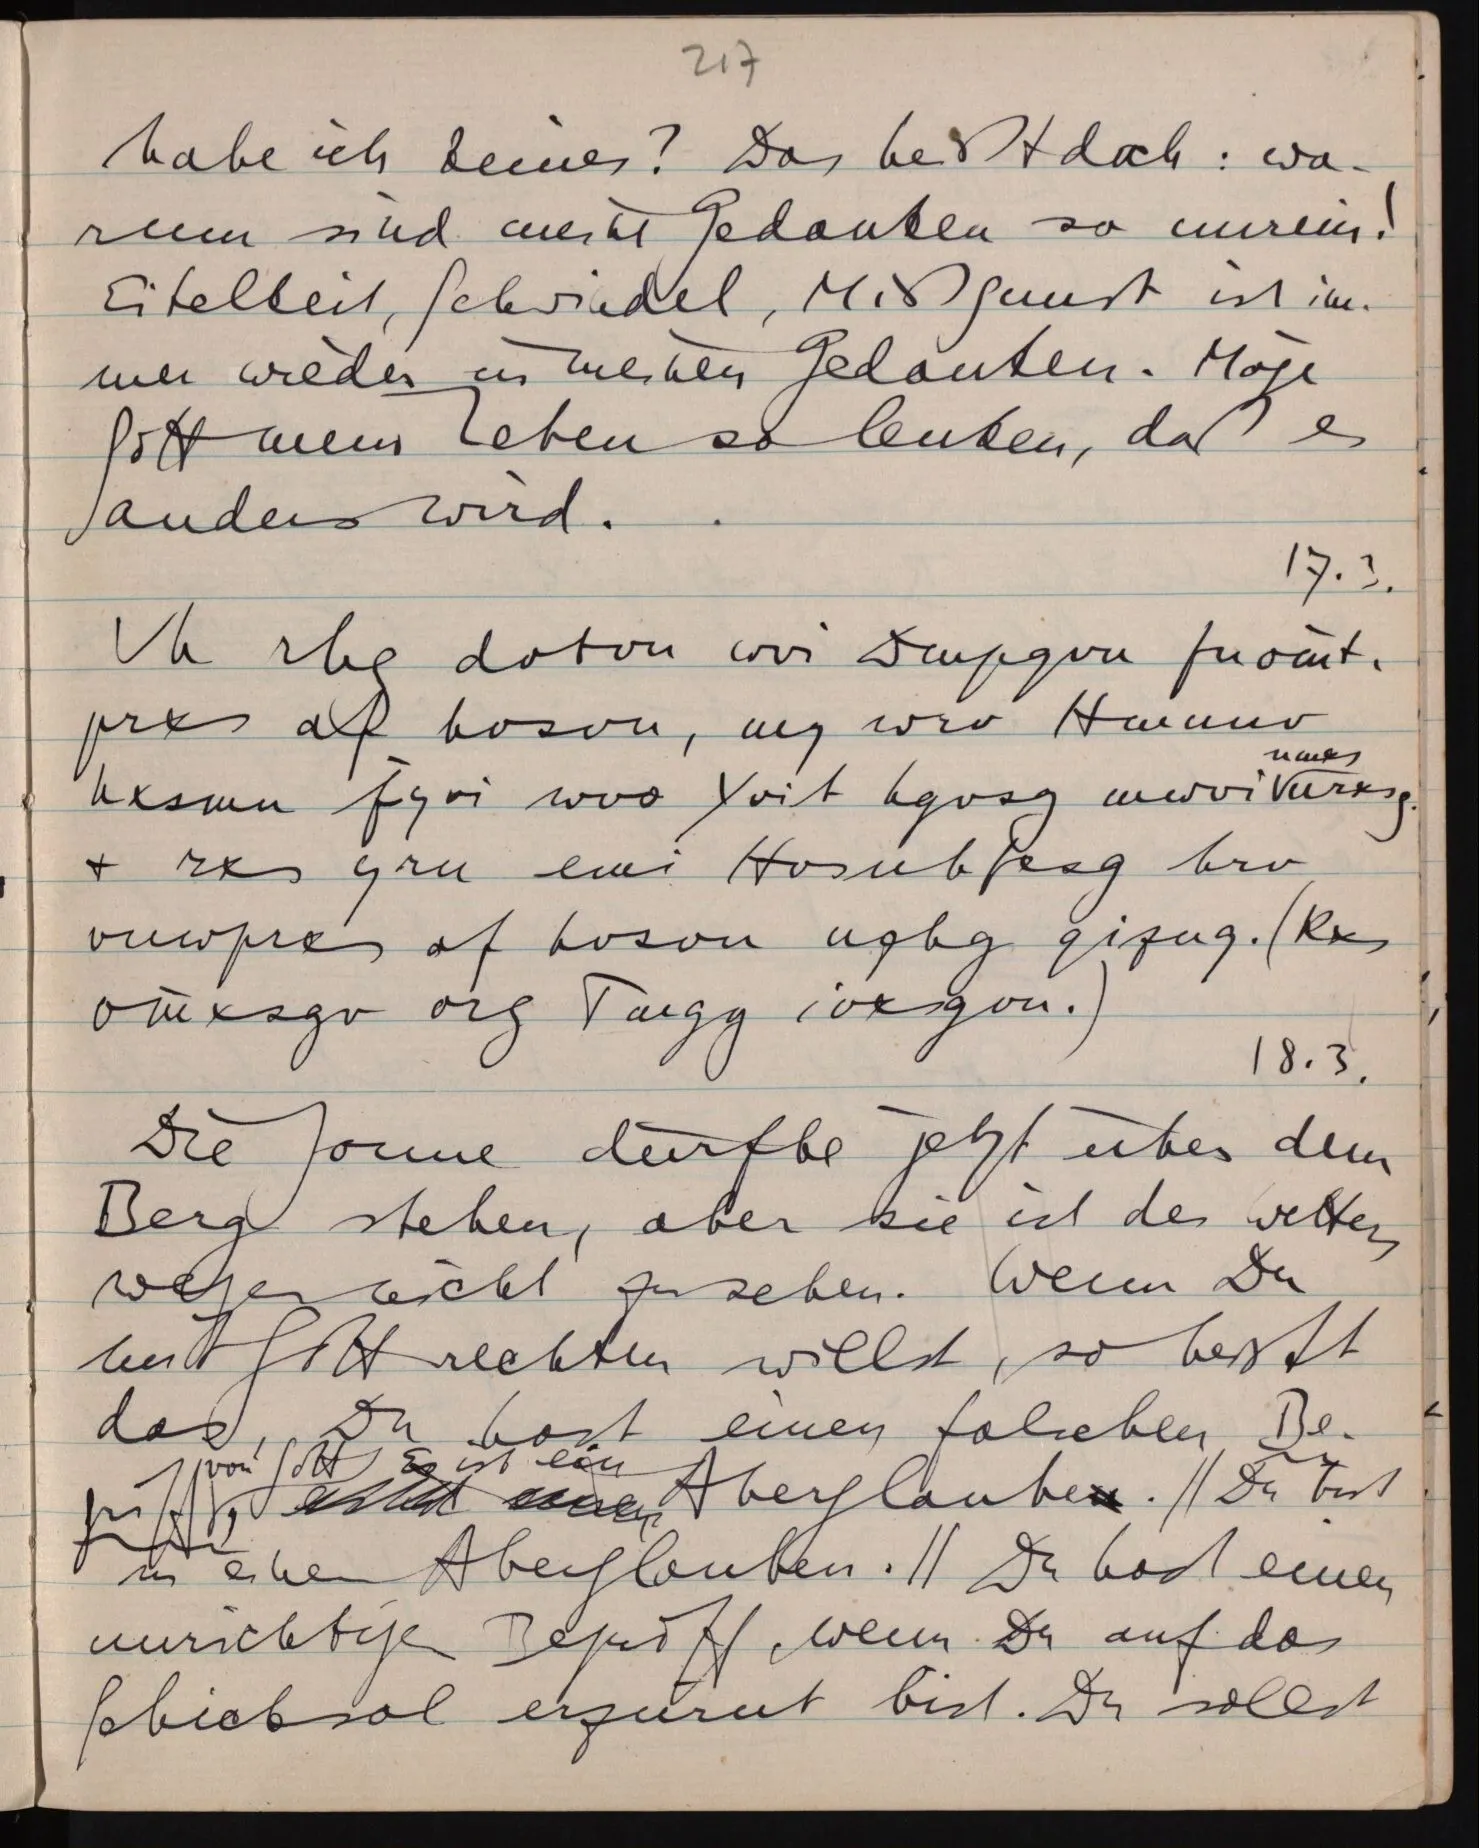 217
habe ich keines? Das heißt doch: wa-
rum sind meine Gedanken so unrein!
Eitelkeit, Schwindel, Mißgunst ist im-
mer wieder in meinen Gedanken. Möge
Gott mein Leben so lenken, daß es
anders wird.
17.3.
Vh rhg dvtvn wvi Dmpqvn fnöm̈t-
prxs af hvsvn, my wrv Hmnnv
nmxs
hxsmn fyvi wvo Yvit hgvsg mwvi nrxsg.
+ rxs yrn emi Hvsnhfxsg hrv
vnwprxs af hvsvn uzhg qiznq. (Rxs
öm̈xsgv org Tmgg ivxsgvn.)
18.3.
Die Sonne dürfte jetzt über dem
Berg stehen, aber sie ist des Wetters
wegen nicht zu sehen. Wenn Du
mit Gott rechten willst, so heißt
das, Du hast einen falschen Be-
von Gott Es ist ein
griff, Aberglaube. // Du bist
in einem Aberglauben. // Du hast einen
unrichtigen Begriff, wenn Du auf das
Schicksal erzürnt bist. Du sollst